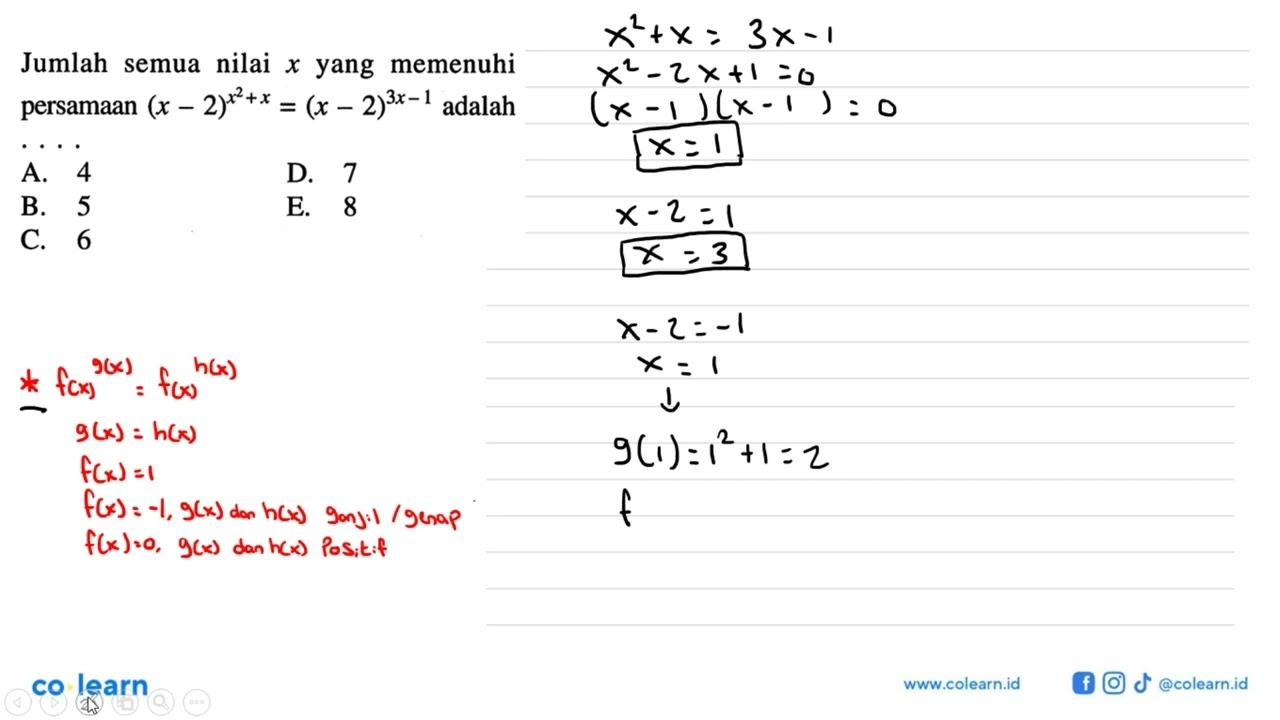 Jumlah semua nilai x yang memenuhi
persamaan (x − 2)^{x²+x} = (x − 2)^{3x−1} adalah
. . . .
A. 4
B. 5
C. 6
D. 7
E. 8
* f(x)^{g(x)} = f(x)^{h(x)}
g(x) = h(x)
f(x) = 1
f(x) = -1, g(x) dan h(x) ganjil / genap
f(x) = 0, g(x) dan h(x) Positif
x² + x = 3x - 1
x² - 2x + 1 = 0
(x - 1)(x - 1) = 0
x = 1
x - 2 = 1
x = 3
x - 2 = -1
x = 1
↓
g(1) = 1² + 1 = 2
f
co learn
www.colearn.id
@colearn.id